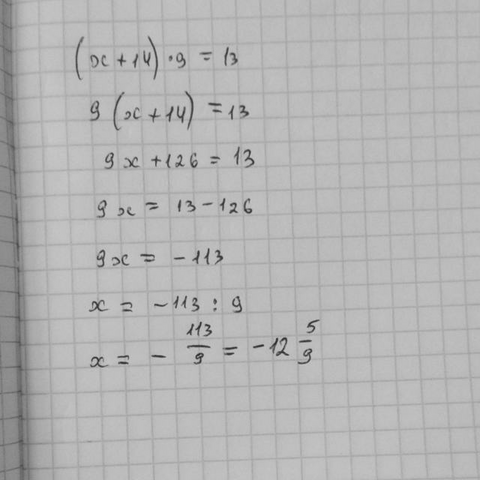 (x+14)·9 = 13
9(x+14) = 13
9x+126 = 13
9x = 13-126
9x = -113
x = -113 : 9
x = - 113/9 = -12 5/9